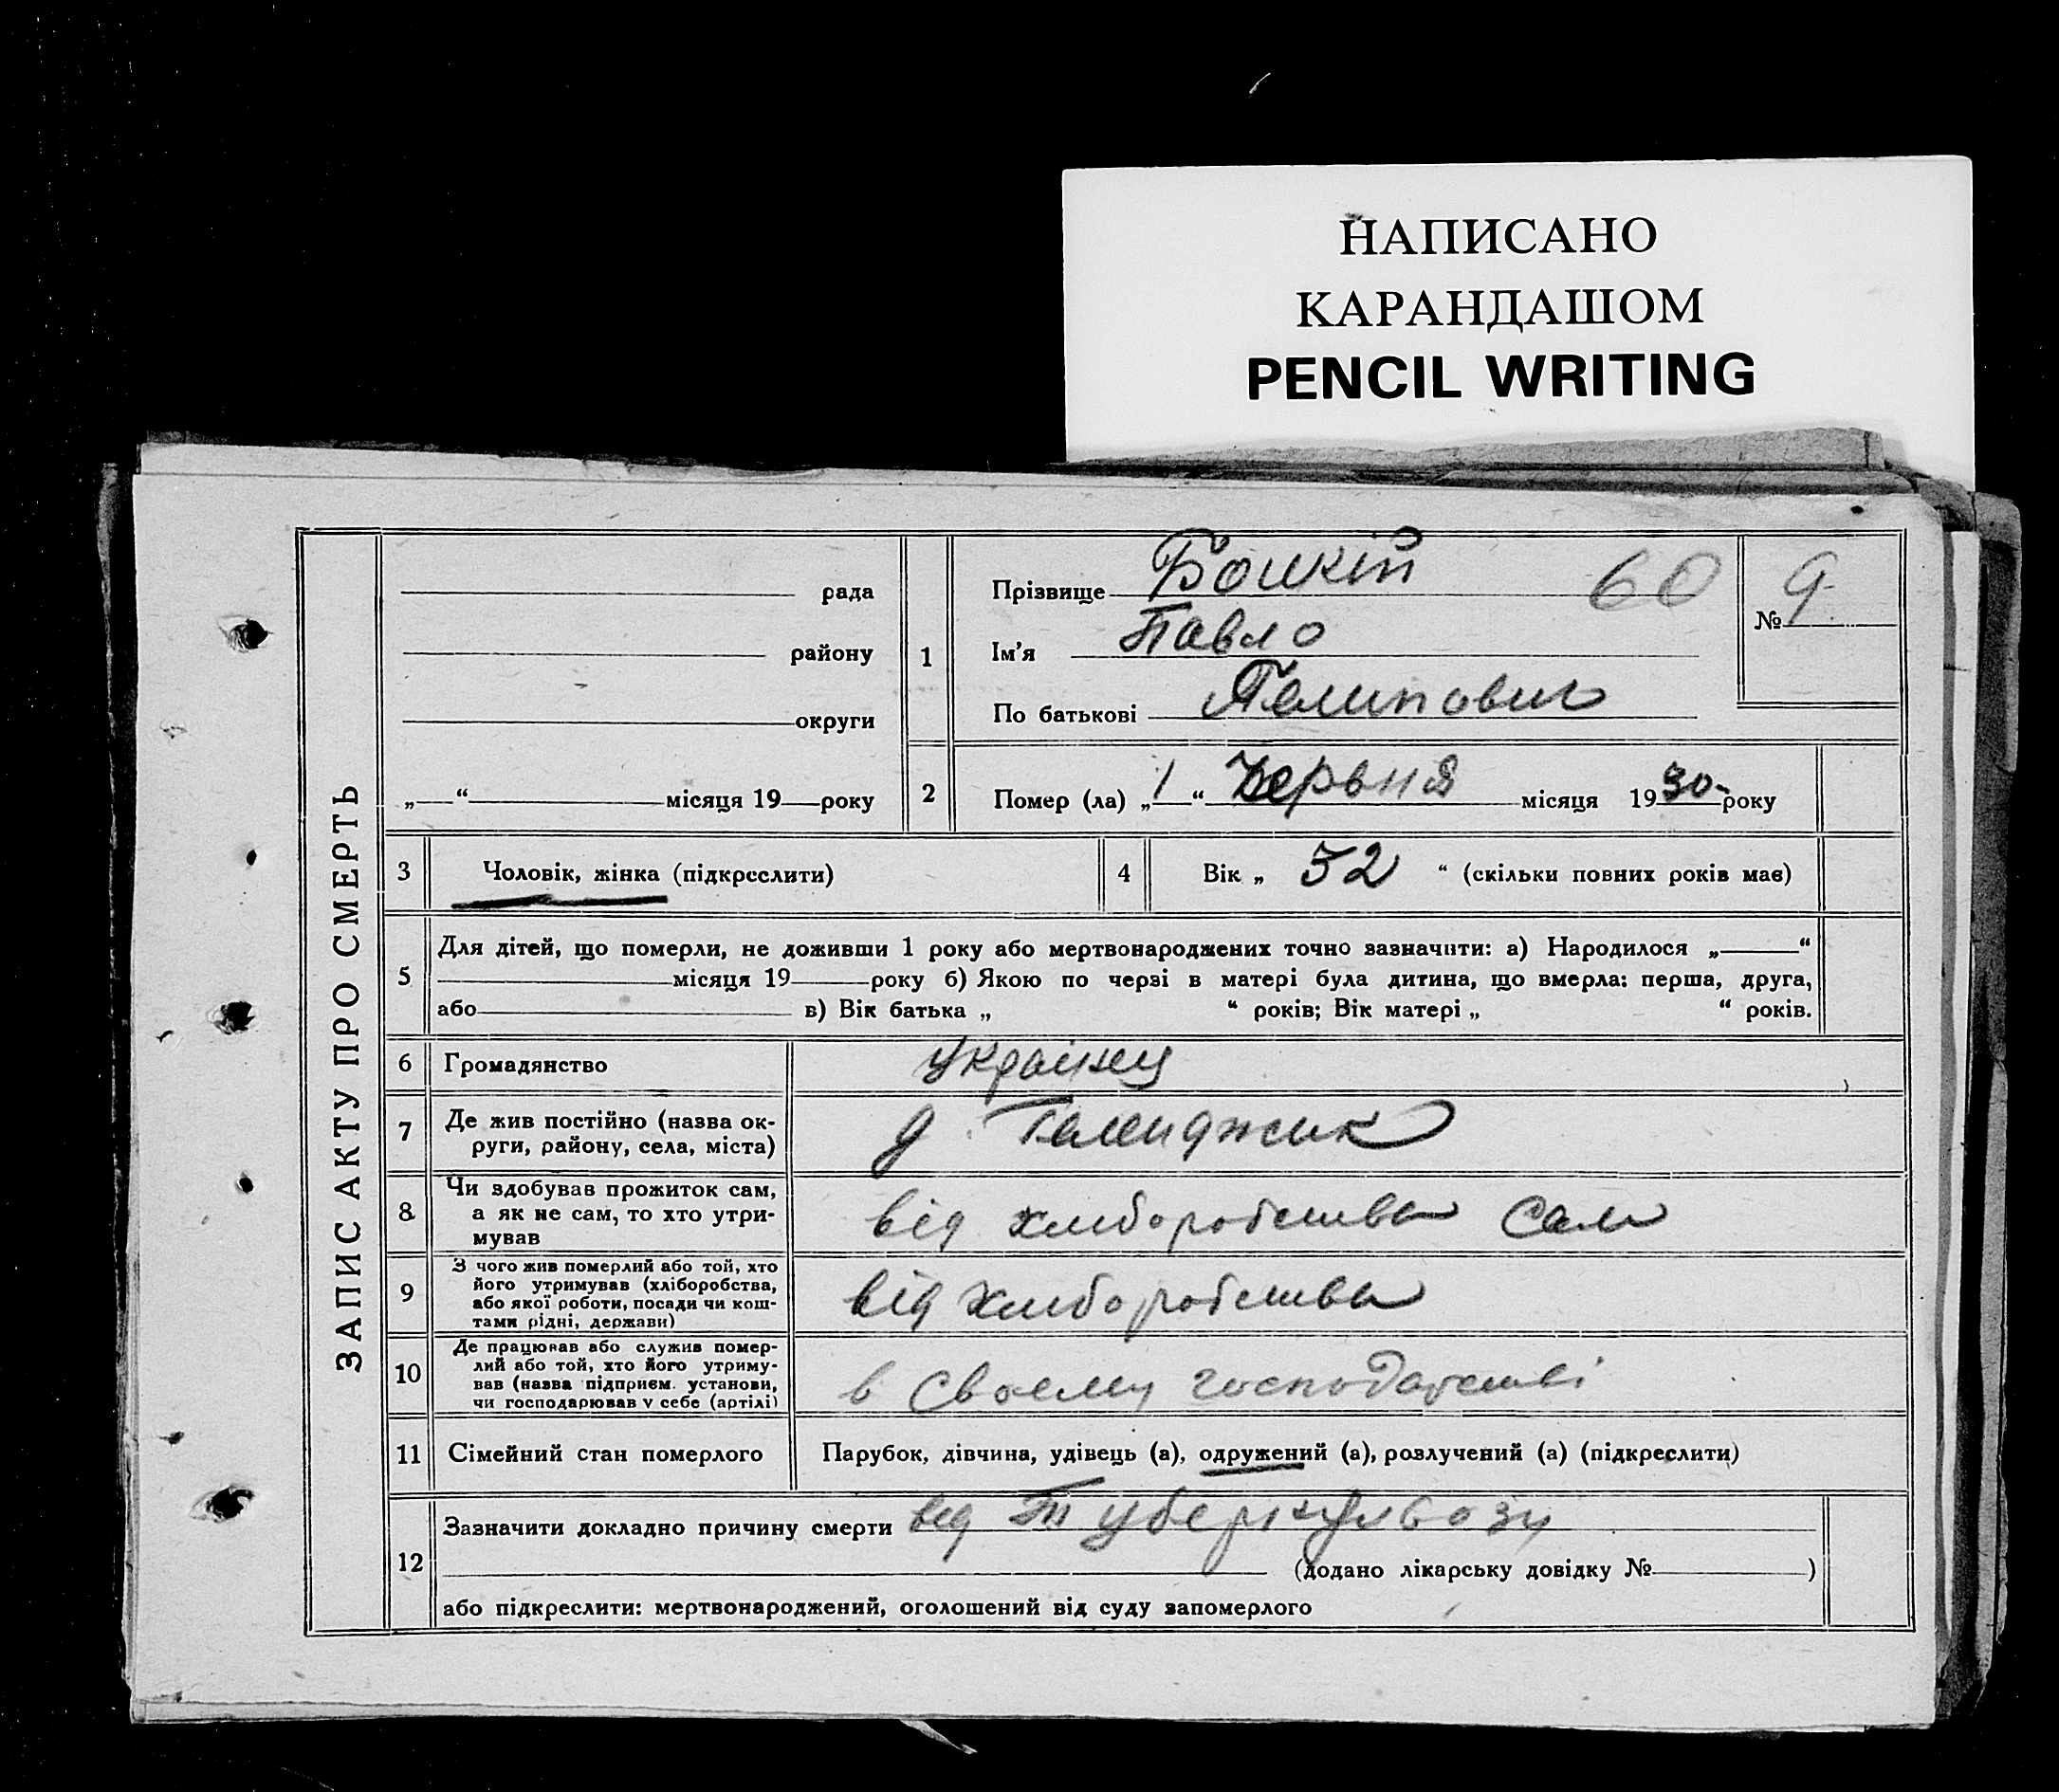 НАПИСАНО
КАРАНДАШОМ
PENCIL WRITING
ЗАПИС АКТУ ПРО СМЕРТЬ
рада
району
округи
„ “ місяця 19 року
1
Прізвище 60
Ім'я Павло
По батькові
№ 9
2 Помер (ла) „1“ Червня місяця 1930 року
3 Чоловік, жінка (підкреслити)
4 Вік „ 52 “ (скільки повних років має)
5 Для дітей, що померли, не доживши 1 року або мертвонароджених точно зазначити: а) Народилося „ “
місяця 19 року б) Якою по черзі в матері була дитина, що вмерла: перша, друга,
або в) Вік батька „ “ років; Вік матері „ “ років.
6 Громадянство Українец
7 Де жив постійно (назва ок-
руги, району, села, міста)
8 Чи здобував прожиток сам,
а як не сам, то хто утри-
мував
від хлиборобства Сам
9 З чого жив померлий або той, хто
його утримував (хліборобства,
або якої роботи, посади чи кош-
тами рідні, держави)
від хлиборобства
10 Де працював або служив помер-
лий або той, хто його утриму-
вав (назва підприєм. установи,
чи господарював у себе (артілі)
в своему господарстві
11 Сімейний стан померлого
Парубок, дівчина, удівець (а), одружений (а), розлучений (а) (підкреслити)
12 Зазначити докладно причину смерти від Туберкульозу
(додано лікарську довідку № )
або підкреслити: мертвонароджений, оголошений від суду запомерлого